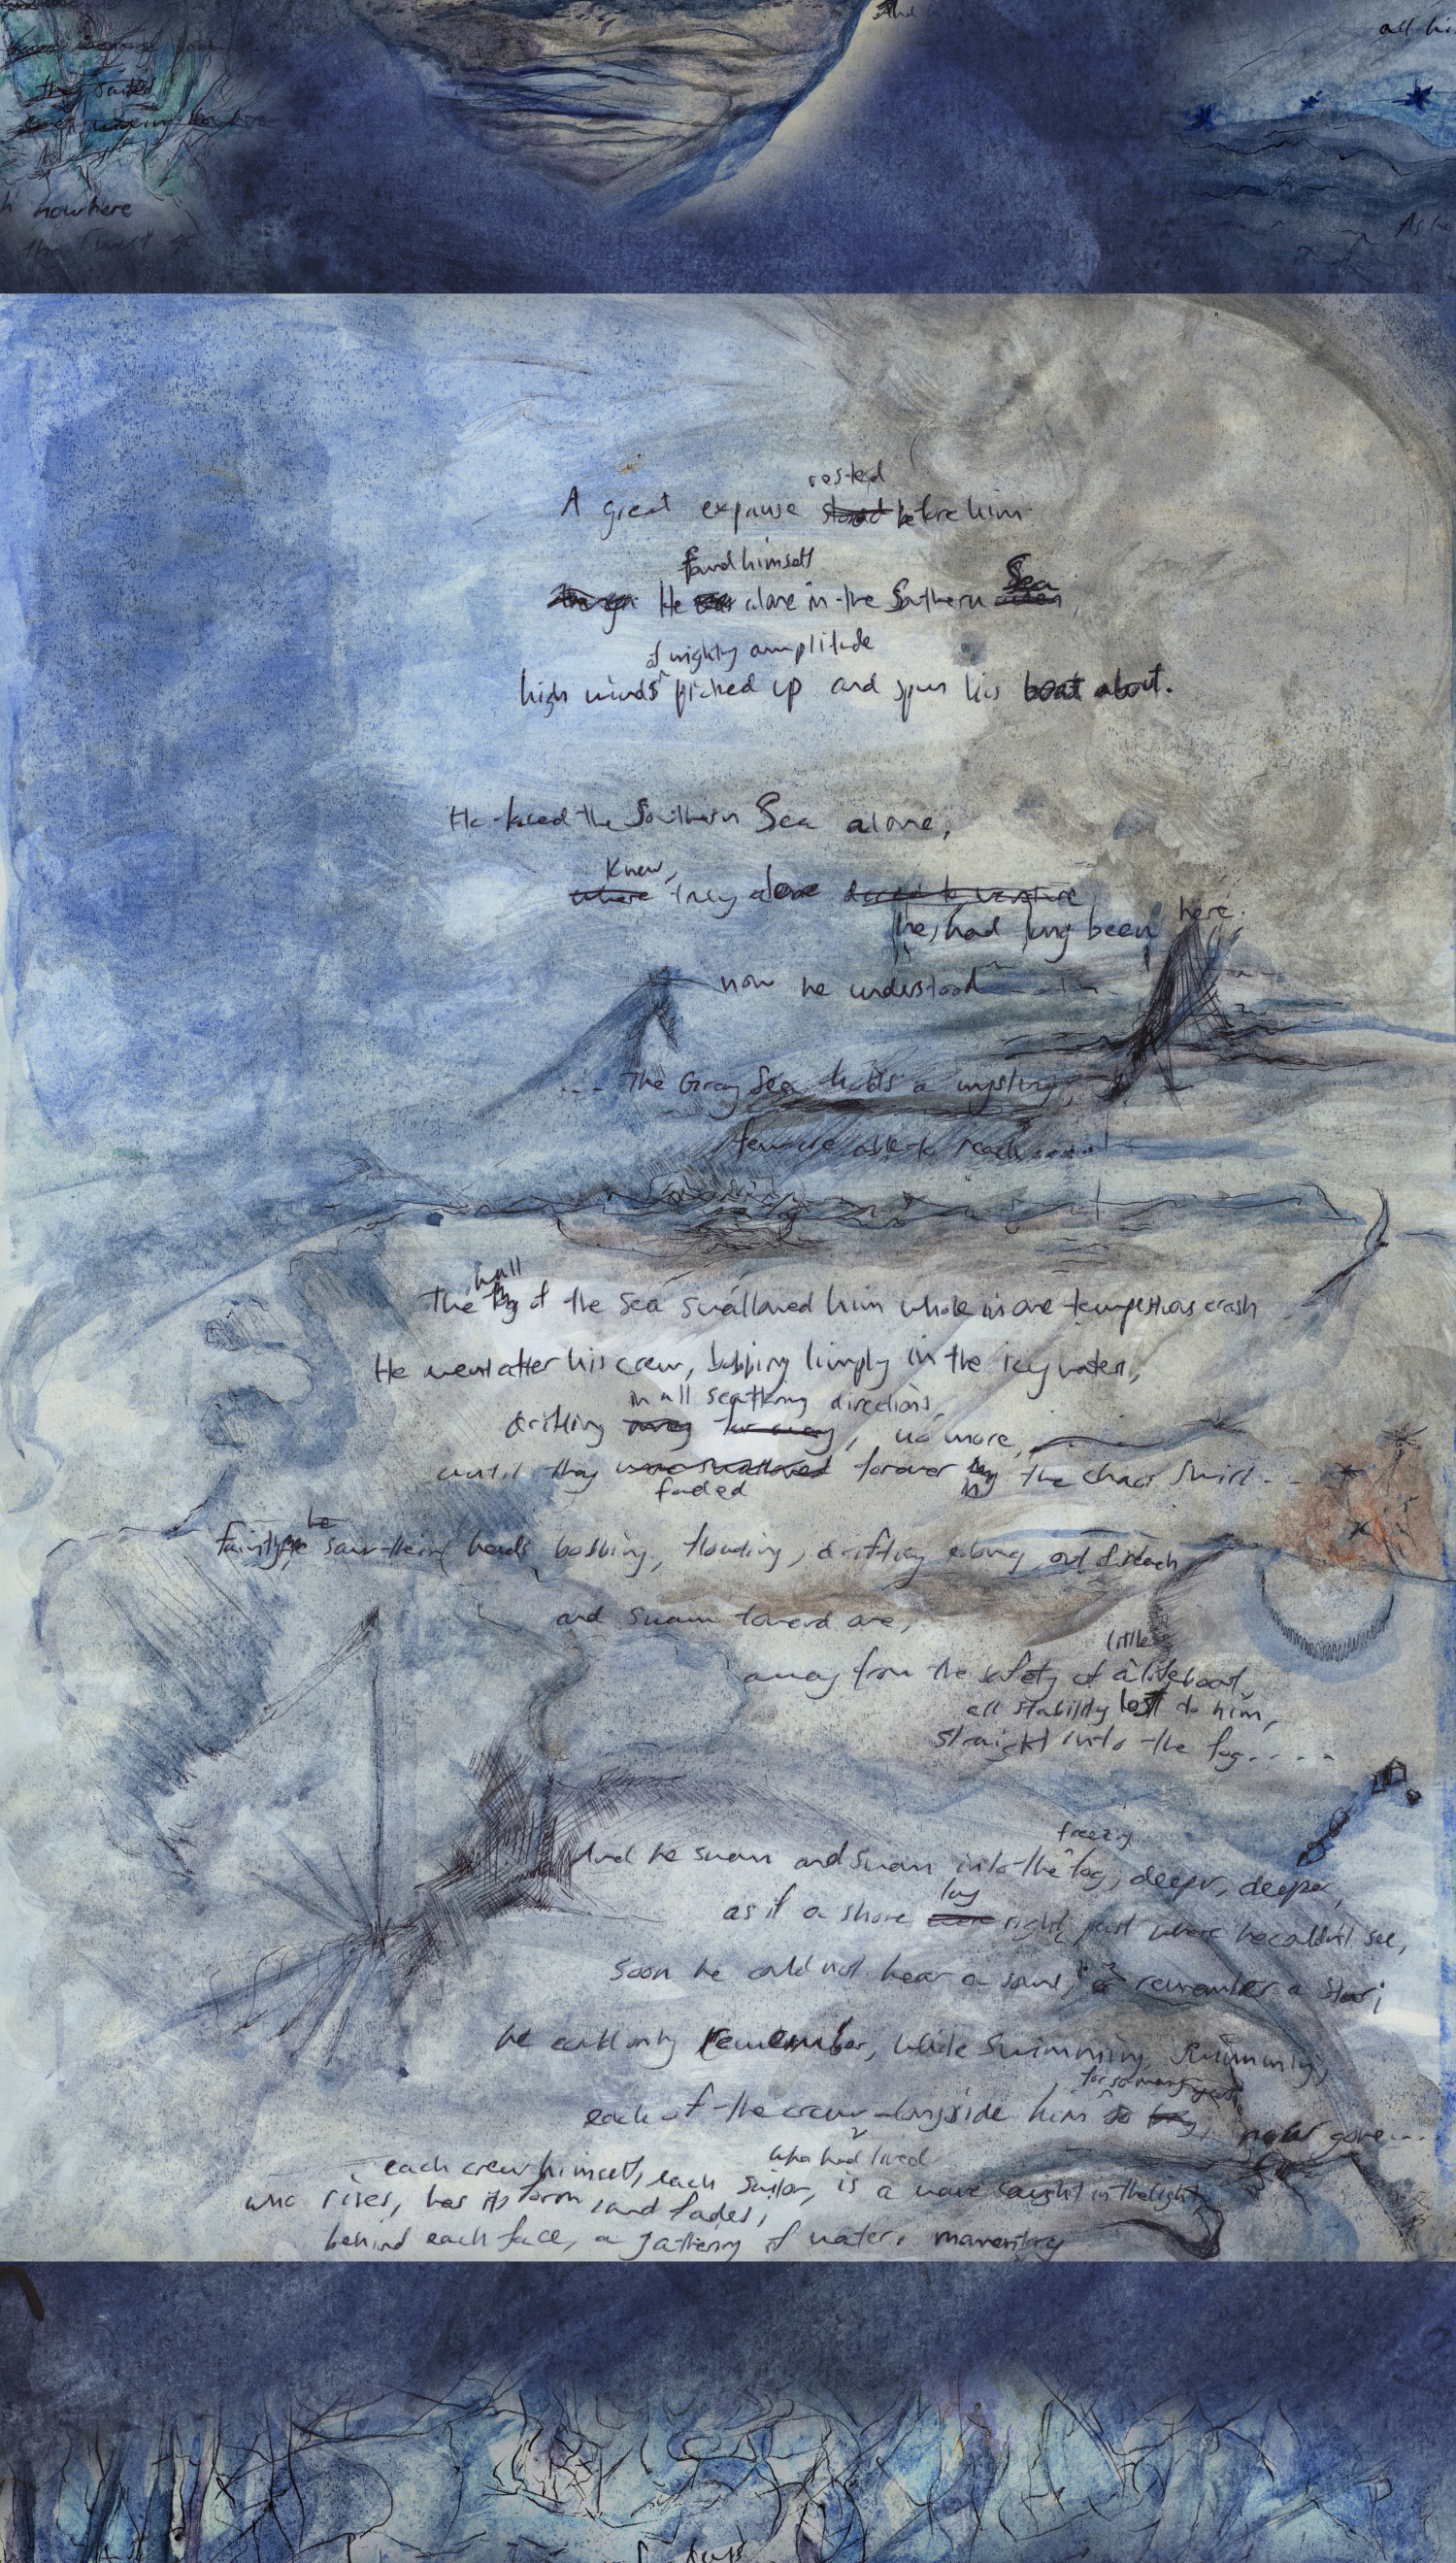 they sailed
nowhere
And
all hi
As he
rested
A great expanse stood before him
found himself
He alone in the Southern Sea
of mighty amplitude
high winds picked up and spun his boat about.
He faced the Southern Sea alone,
Knew,
where they alone dared to venture
he, had long been here.
now he understood
.... The Gray Sea holds a mystery,
few are able to reach.....
wall
The fog of the Sea swallowed him whole in one tempestuous crash
He went after his crew, bobbing limply in the icy water,
in all scattering directions,
drifting far away, no more,
until they were swallowed forever by the chaos swirl...
faded in
he
faintly, saw their heads bobbing, floating, drifting along, out of reach
and swam toward one,
little
away from the safety of a lifeboat,
all stability lost to him,
straight into the fog.....
freezing
And he swam and swam into the fog, deeper, deeper,
lay
as if a shore were right past where he couldn't see,
Soon he could not hear a sound, or remember a star;
he could only remember, while swimming, swimming,
for so many years
each of the crew alongside him so long, now gone...
who had lived
each crew himself, each sailor, is a wave caught in the light
who rises, has its form, and fades,
behind each face, a gathering of water, momentary